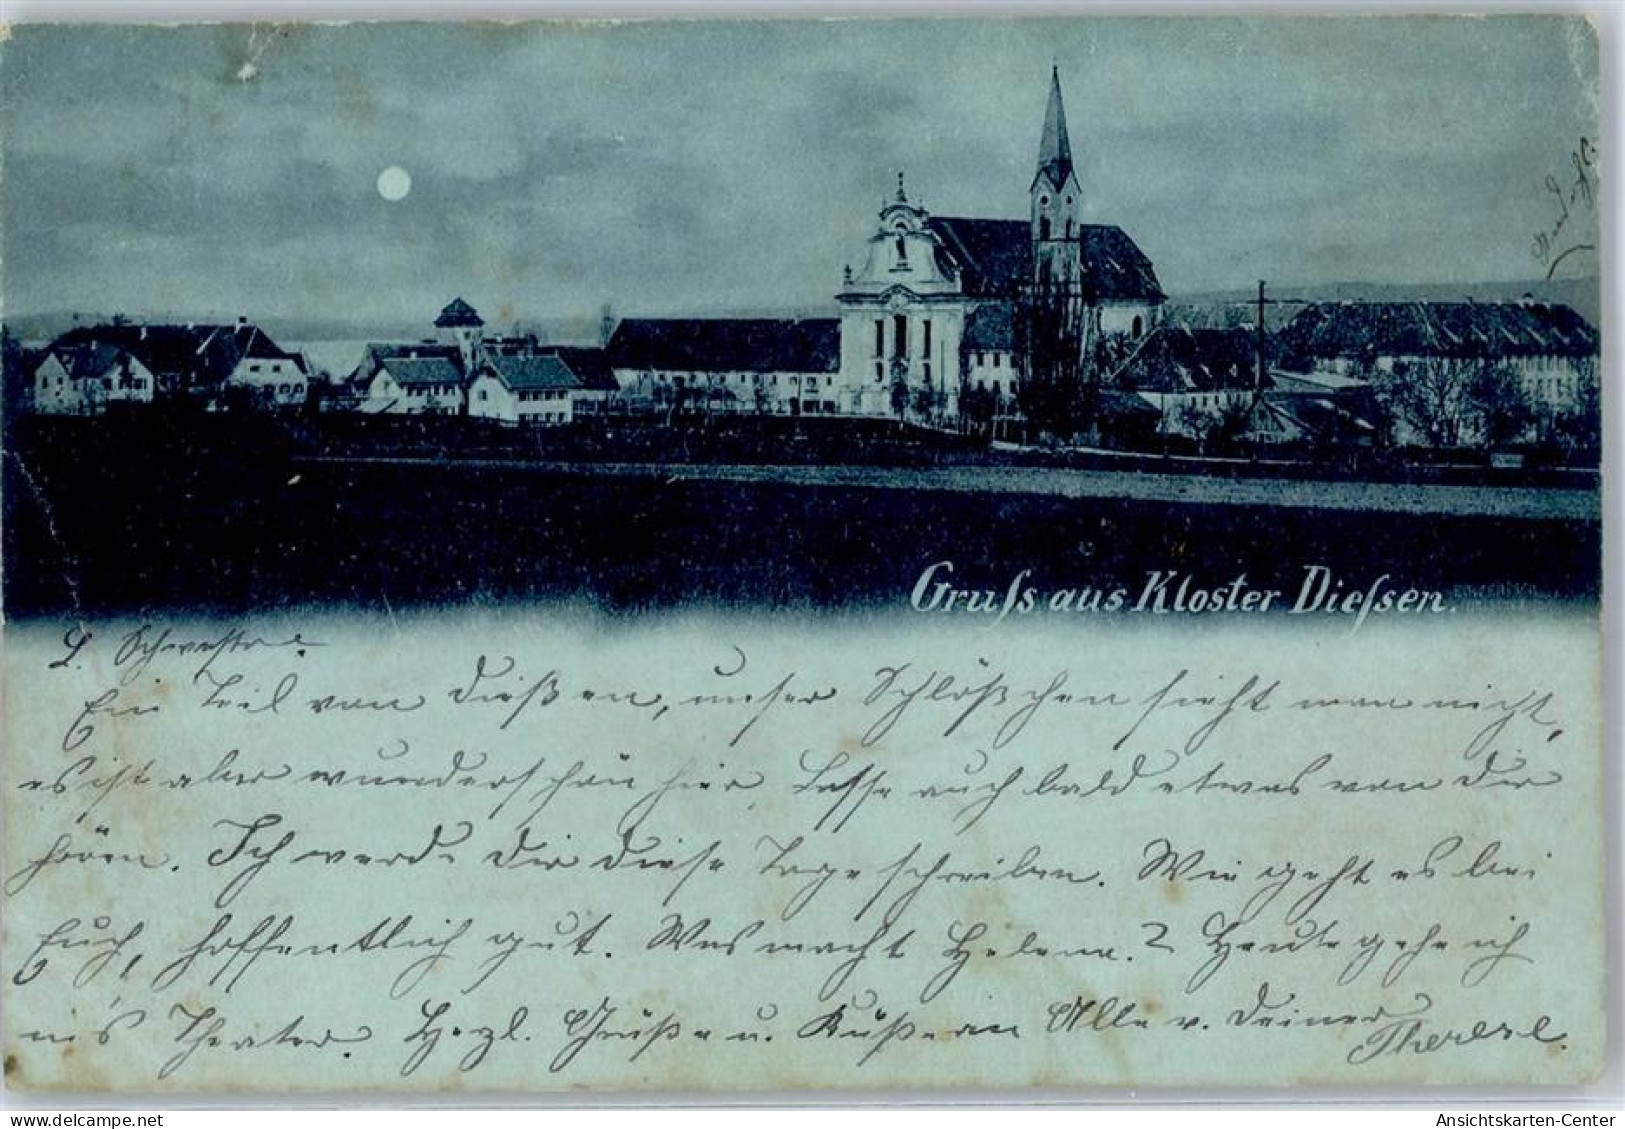 Gruſs aus Kloster Dieſsen.
L. Schwester.
Ein Teil von Dießen, unser Schlößchen sieht man nicht,
es ist aber wunderschön hier. Lasse auch bald etwas von Dir
hören. Ich werde Dir diese Tage schreiben. Wie geht es bei
Euch, hoffentlich gut. Was macht Helena? Heute gehe ich
in's Theater. Herzl. Grüße u. Küße an Alle v. Deiner
Therese.
Ansichtskarten-Center